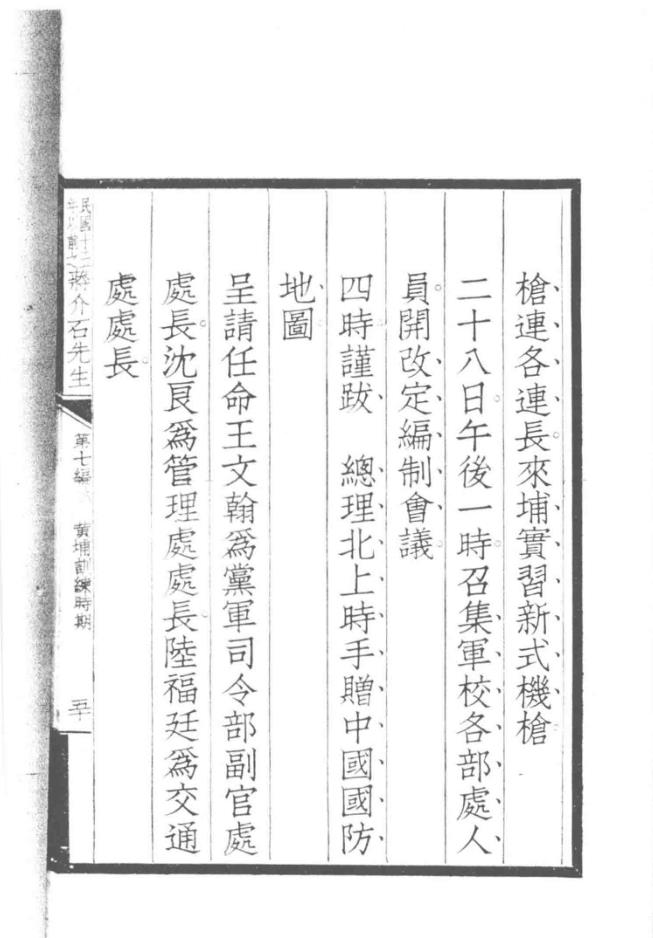 槍連各連長來埔實習新式機槍
二十八日午後一時召集軍校各部處人
員開改定編制會議
四時謹跋　總理北上時手贈中國國防
地圖
呈請任命王文翰爲黨軍司令部副官處
處長沈良爲管理處處長陸福廷爲交通
處處長
民國十五年以前之蔣介石先生
第七編　黃埔訓練時期